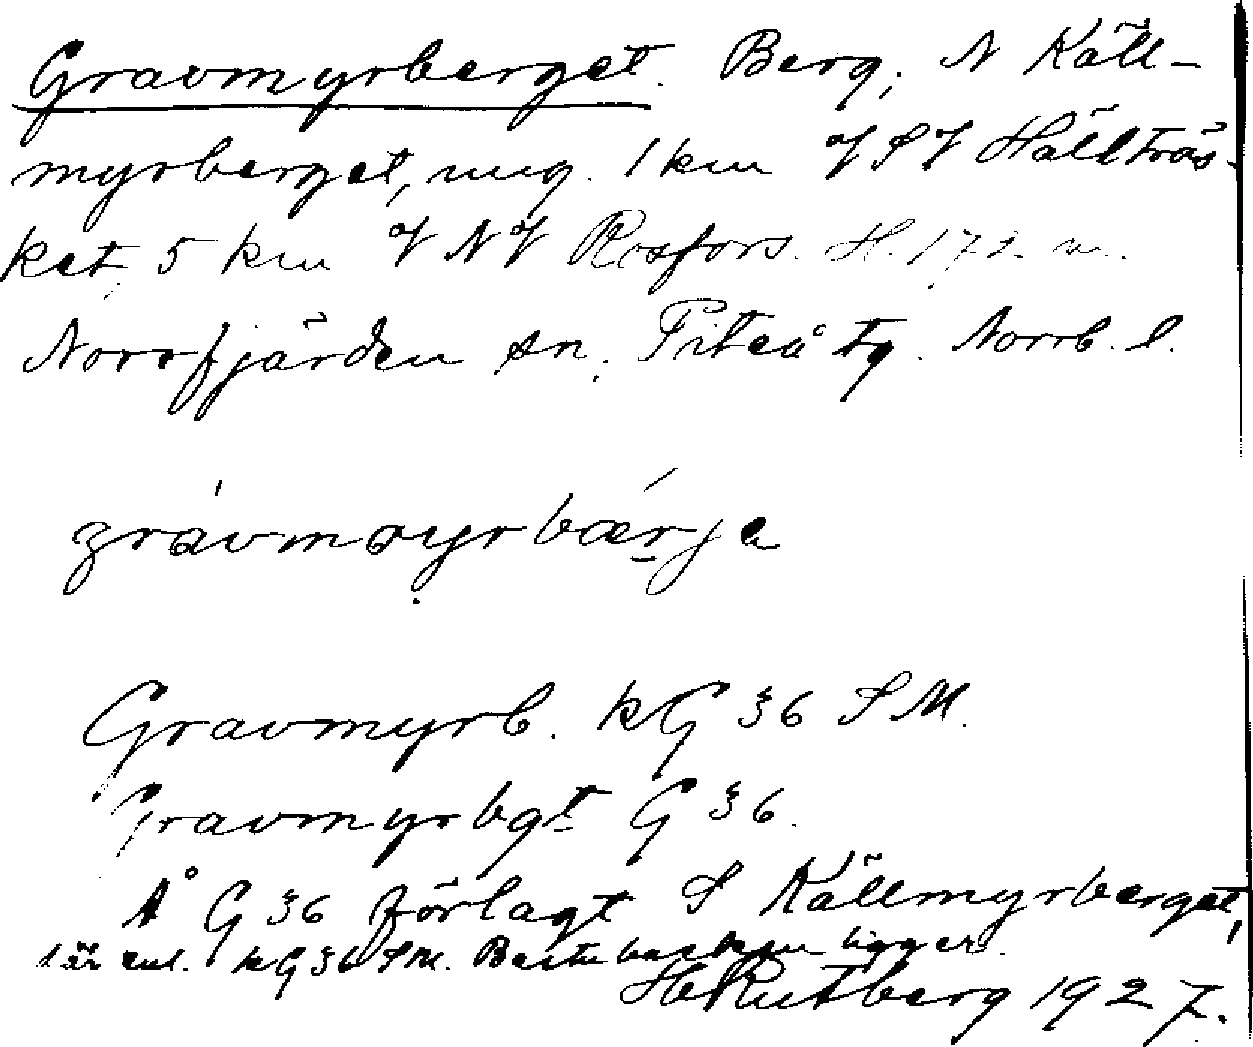 Gravmyrberget. Berg, N Käll-
myrberget, ung. 1 km VSV Hällträs-
ket, 5 km VNV Rosfors. H. 172 m.
Norrfjärden sn. Piteå tg. Norrb. l.
grávmøyrbǽrje
Gravmyrb. kG 36 SM.
Gravmyrbgt G 36.
Å G 36 förlagt S Källmyrberget,
där enl. kG 36 SM. ligger.
H Rutberg 1927.